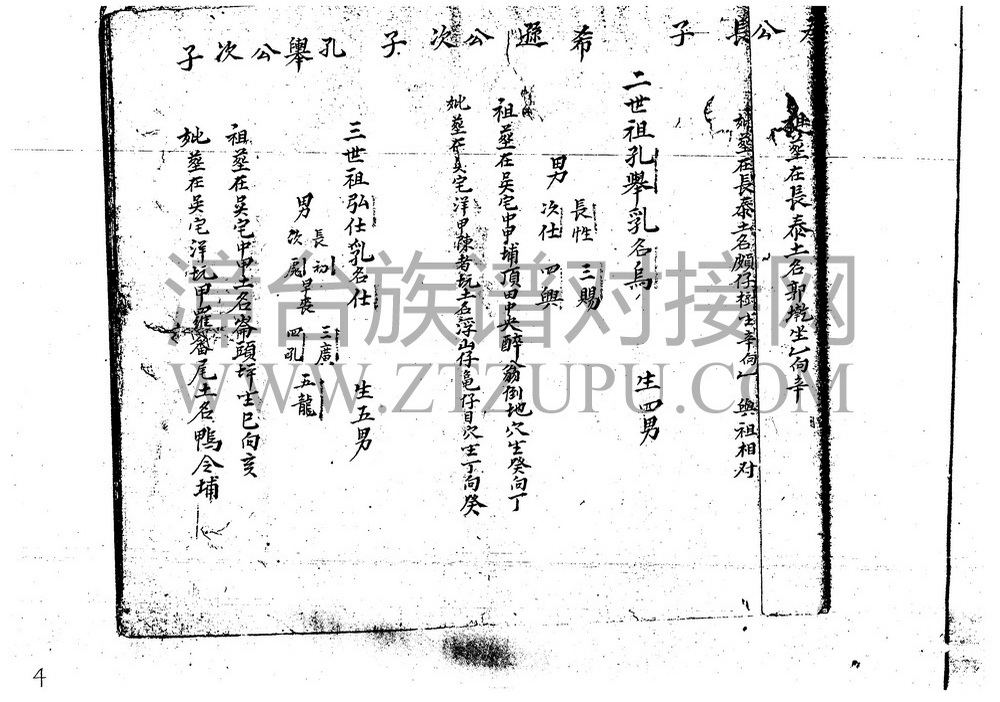 公長子
祖塟在長泰土名郭墩坐乙向辛
妣塟在長泰土名頗仔樹坐辛向乙 與祖相对
希遜公次子
二世祖孔舉乳名烏 生四男
男 長性 次仕 三賜 四興
祖塟在吳宅中甲埔頂田中央醉翁倒地穴坐癸向丁
妣塟在吳宅洋甲陳者坑土名浮山仔龜仔目穴坐丁向癸
孔舉公次子
三世祖弘仕乳名仕 生五男
男 長初 次尾早喪 三廣 四孔 五龍
祖塟在吳宅中甲土名崙頭坪坐巳向亥
妣塟在吳宅洋坑甲羅番尾土名鴨仺埔
漳台族谱对接网
WWW.ZTZUPU.COM
4